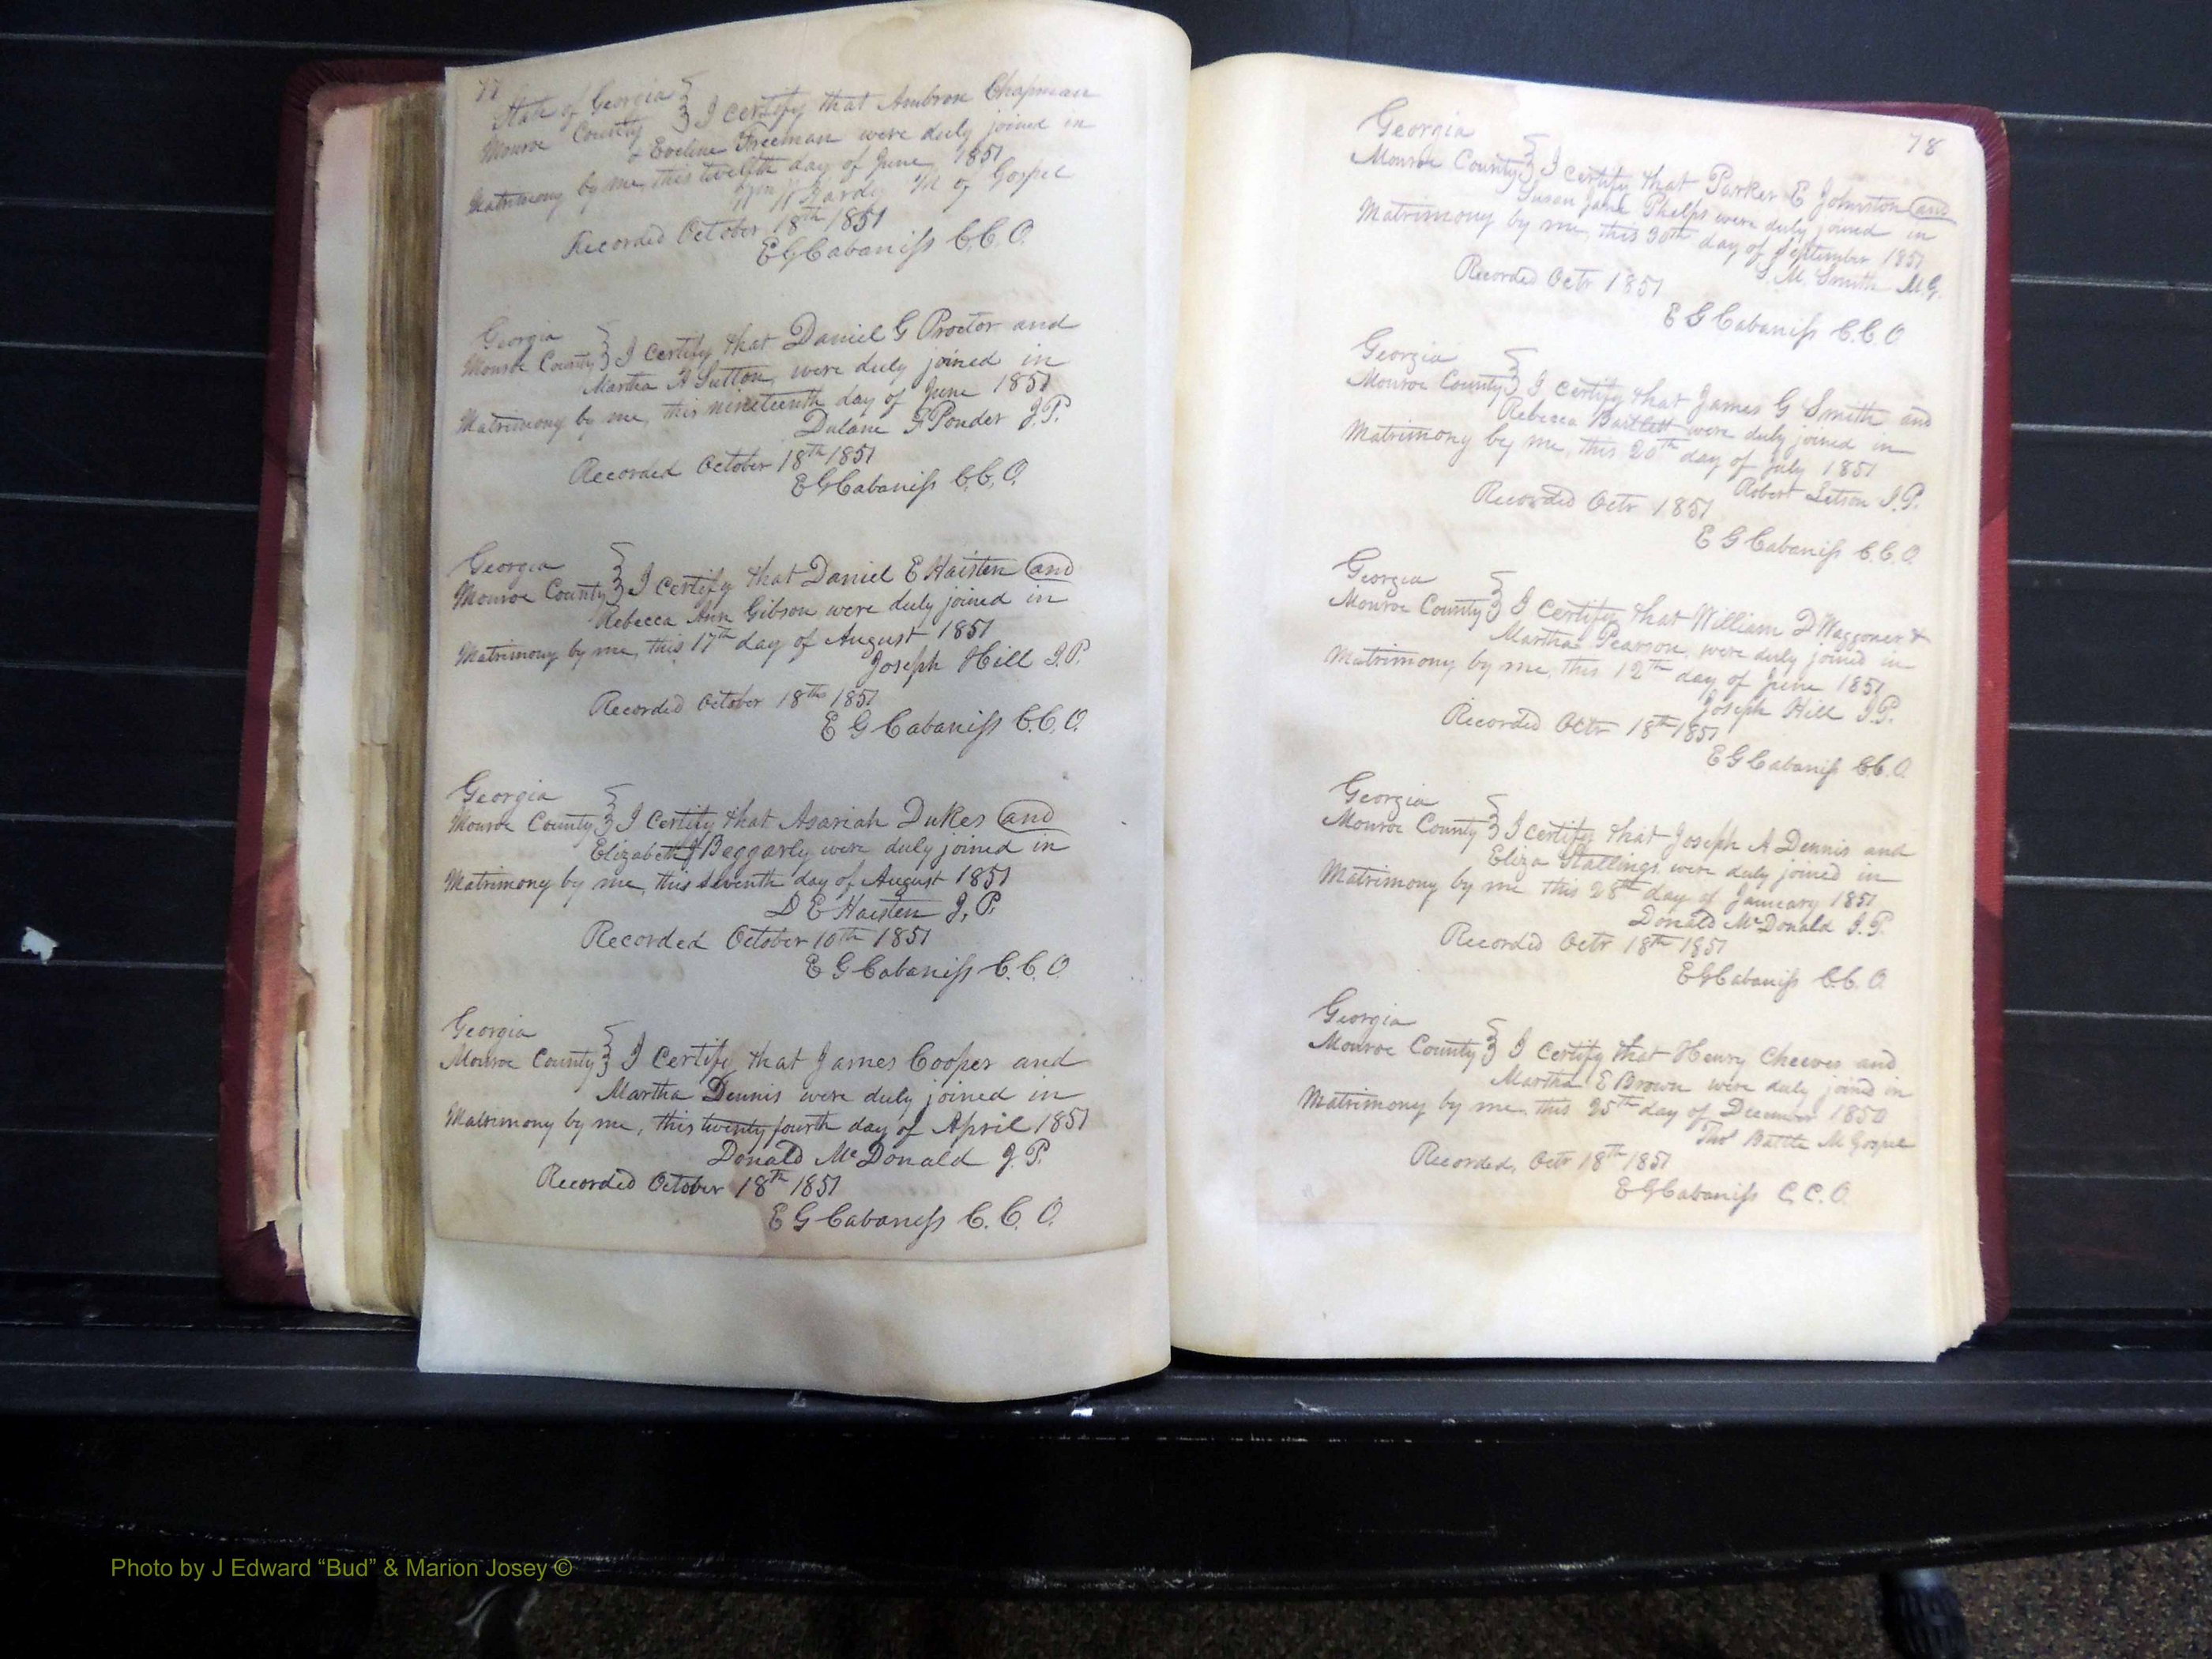 77
State of Georgia
Monroe County } I certify that Ambrose Chapman
& Eveline Freeman were duly joined in
Matrimony by me, this twelfth day of June 1851
Hardy M of Gospel
Recorded October 18th 1851
E G Cabaniss C.C.O.
Georgia
Monroe County } I certify that Daniel G Proctor and
Martha A Sutton, were duly joined in
Matrimony by me, this nineteenth day of June 1851
Dulane F Ponder J.P.
Recorded October 18th 1851
E G Cabaniss C.C.O.
Georgia
Monroe County } I certify that Daniel E Haisten and
Rebecca Ann Gibson were duly joined in
Matrimony by me, this 17th day of August 1851
Joseph Hill J.P.
Recorded October 18th 1851
E G Cabaniss C.C.O.
Georgia
Monroe County } I certify that Asariah Dukes and
Elizabeth J Beggarly were duly joined in
Matrimony by me, this seventh day of August 1851
D E Haisten J.P.
Recorded October 10th 1851
E G Cabaniss C.C.O
Georgia
Monroe County } I certify that James Cooper and
Martha Dennis were duly joined in
Matrimony by me, this twenty fourth day of April 1851
Donald McDonald J.P.
Recorded October 18th 1851
E G Cabaniss C.C.O.
78
Georgia
Monroe County } I certify that Parker E Johnston and
Susan Jane Phelps were duly joined in
Matrimony by me, this 30th day of September 1851
S. M. Smith M.G.
Recorded Octr 1851
E G Cabaniss C.C.O
Georgia
Monroe County } I certify that James G Smith and
Rebecca Bartlett were duly joined in
Matrimony by me, this 20th day of July 1851
Robert Letson J.P.
Recorded Octr 1851
E G Cabaniss C.C.O.
Georgia
Monroe County } I certify that William D Waggoner &
Martha Pearson, were duly joined in
Matrimony by me, this 12th day of June 1851
Joseph Hill J.P.
Recorded Octr 18th 1851
E G Cabaniss C.C.O.
Georgia
Monroe County } I certify that Joseph A Dennis and
Eliza Stallings, were duly joined in
Matrimony by me this 28th day of January 1851
Donald McDonald J.P.
Recorded Octr 18th 1851
E G Cabaniss C.C.O.
Georgia
Monroe County } I certify that Henry Cheeves and
Martha E Brown were duly joined in
Matrimony by me, this 25th day of December 1850
Thos Battle M Gospel
Recorded, Octr 18th 1851
E G Cabaniss C.C.O.
Photo by J Edward “Bud” & Marion Josey ©